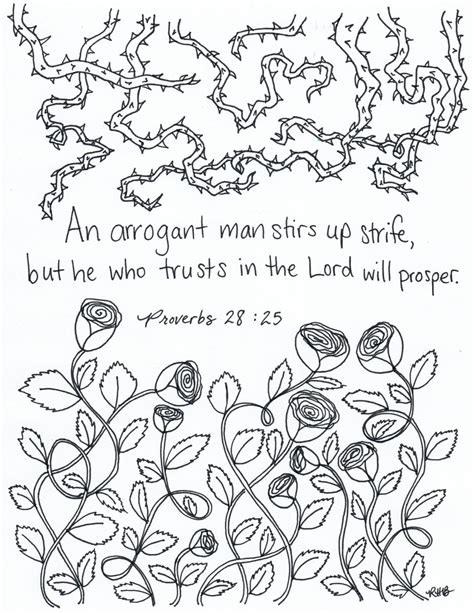 An arrogant man stirs up strife,
but he who trusts in the Lord will prosper.
Proverbs 28:25